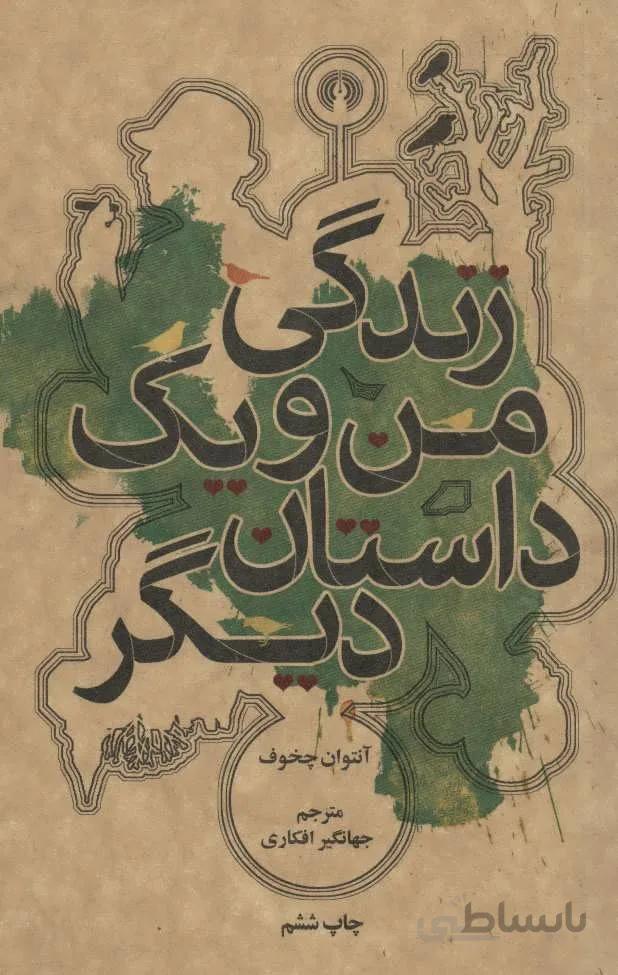 زندگی
من و یک
داستان
دیگر
آنتوان چخوف
مترجم
جهانگیر افکاری
چاپ ششم
باساطی